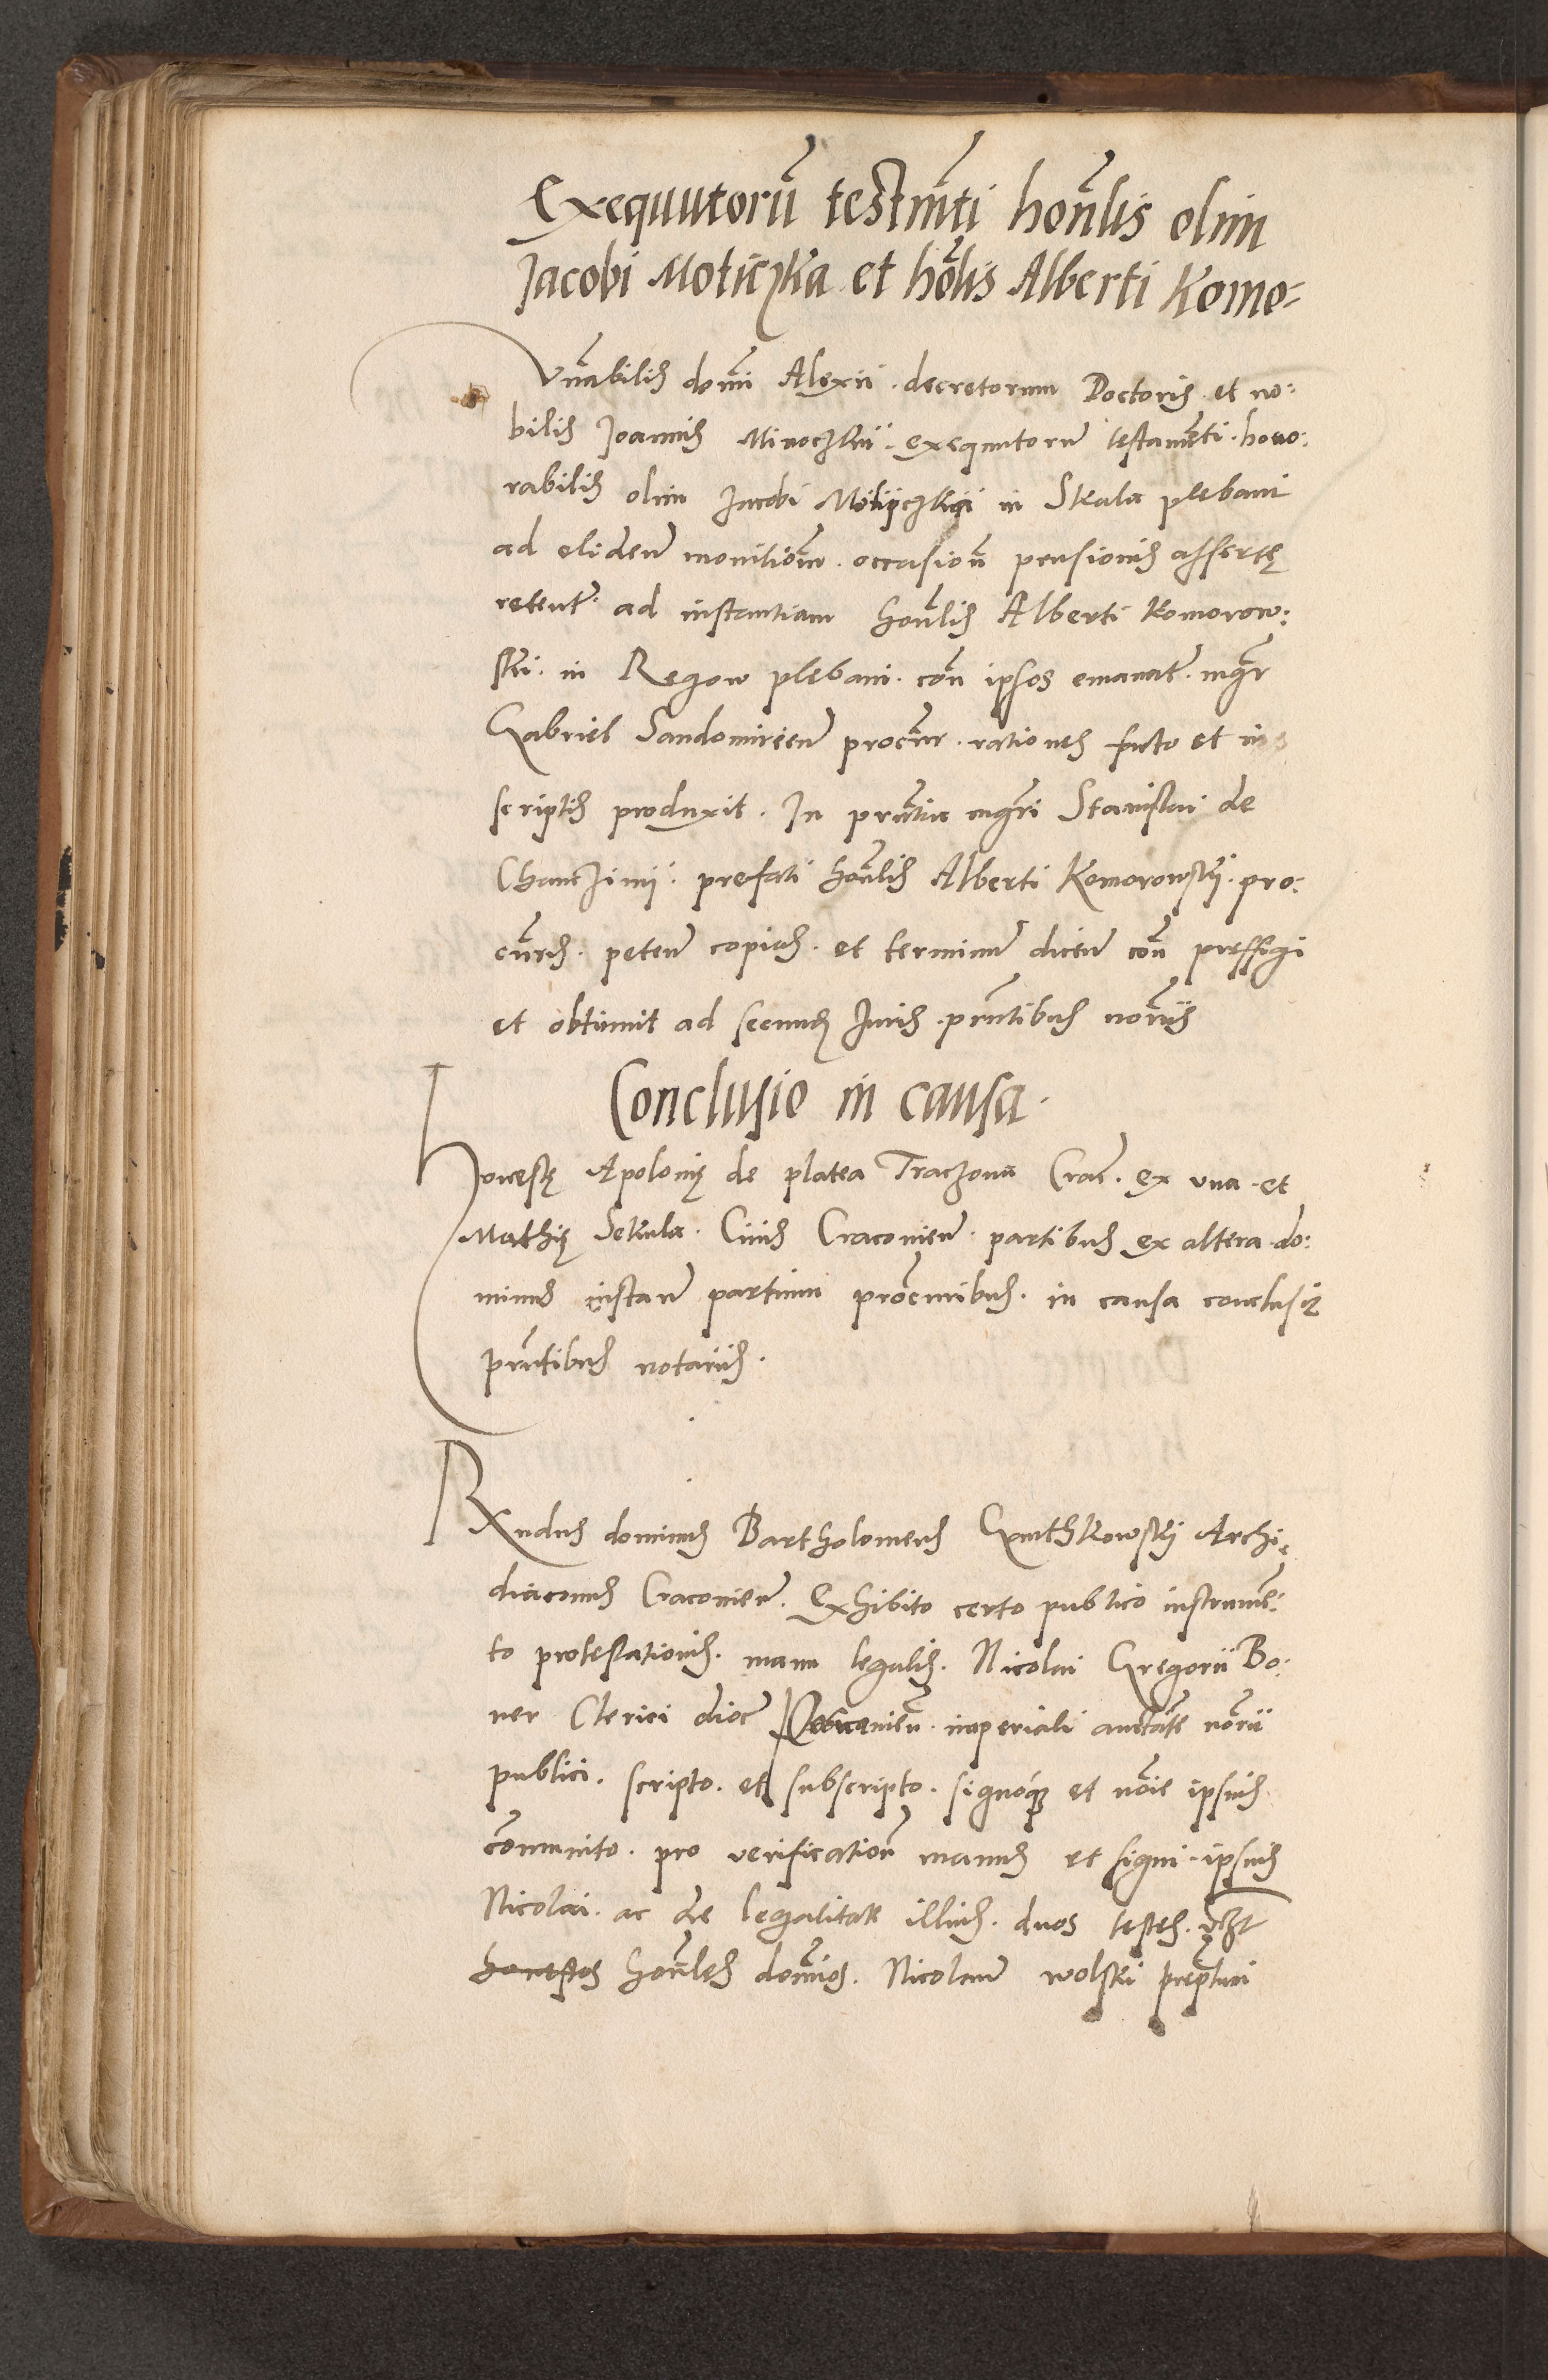 Exequutorū testm̄ti hon̄lis olim
Jacobi Moticzka et hōlis Alberti Komo-
Vn̄abilis dom̄i Alexii decretorum Doctoris et no:
bilis Joannis Minoczkii exequutorum testamēti hono:
rabilis olim Jacobi in Skala plebani
ad eliden̄ monitiōm occasion̄ pensionis assertę
retent̄ ad instantiam hon̄lis Alberti Komorow:
ski in Regow plebani con̄ ipsos emanat̄ mgr̄
Gabriel Sandomirien̄ procūr rationes facto et in
scriptis produxit. In pn̄tia mgr̄i Stanislai de
Chanczinij prefati hon̄lis Alberti Komorowskij pro:
cūris peten̄ copias et terminū dicen̄ con̄ preffigi
et obtinuit ad secundā Juris pn̄tibus nōriis
Conclusio in causa.
Honestę Apolonię de platea Traczona Crac̄ ex una et
Mathię Sekula Civis Cracovien̄ partibus ex altera do:
minus instan̄ partium procūribus in causa conclusit
pn̄tibus notariis.
Rn̄dus dominus Bartholomeus Ganthkowskij Archi:
diaconus Cracovien̄ Exhibito certo publico instrumē:
to protestationis manu legalis Nicolai Gregorii Bo:
ner Clerici dioc̄ imperiali auctāte nōrii
publici scripto et subscripto signoq; et nōie ipsius
cōmunito pro verification̄ manus et signi ipsius
Nicolai ac de legalitate illius duos testes vz̄
honestos hon̄les dom̄os Nicolaum Wolski